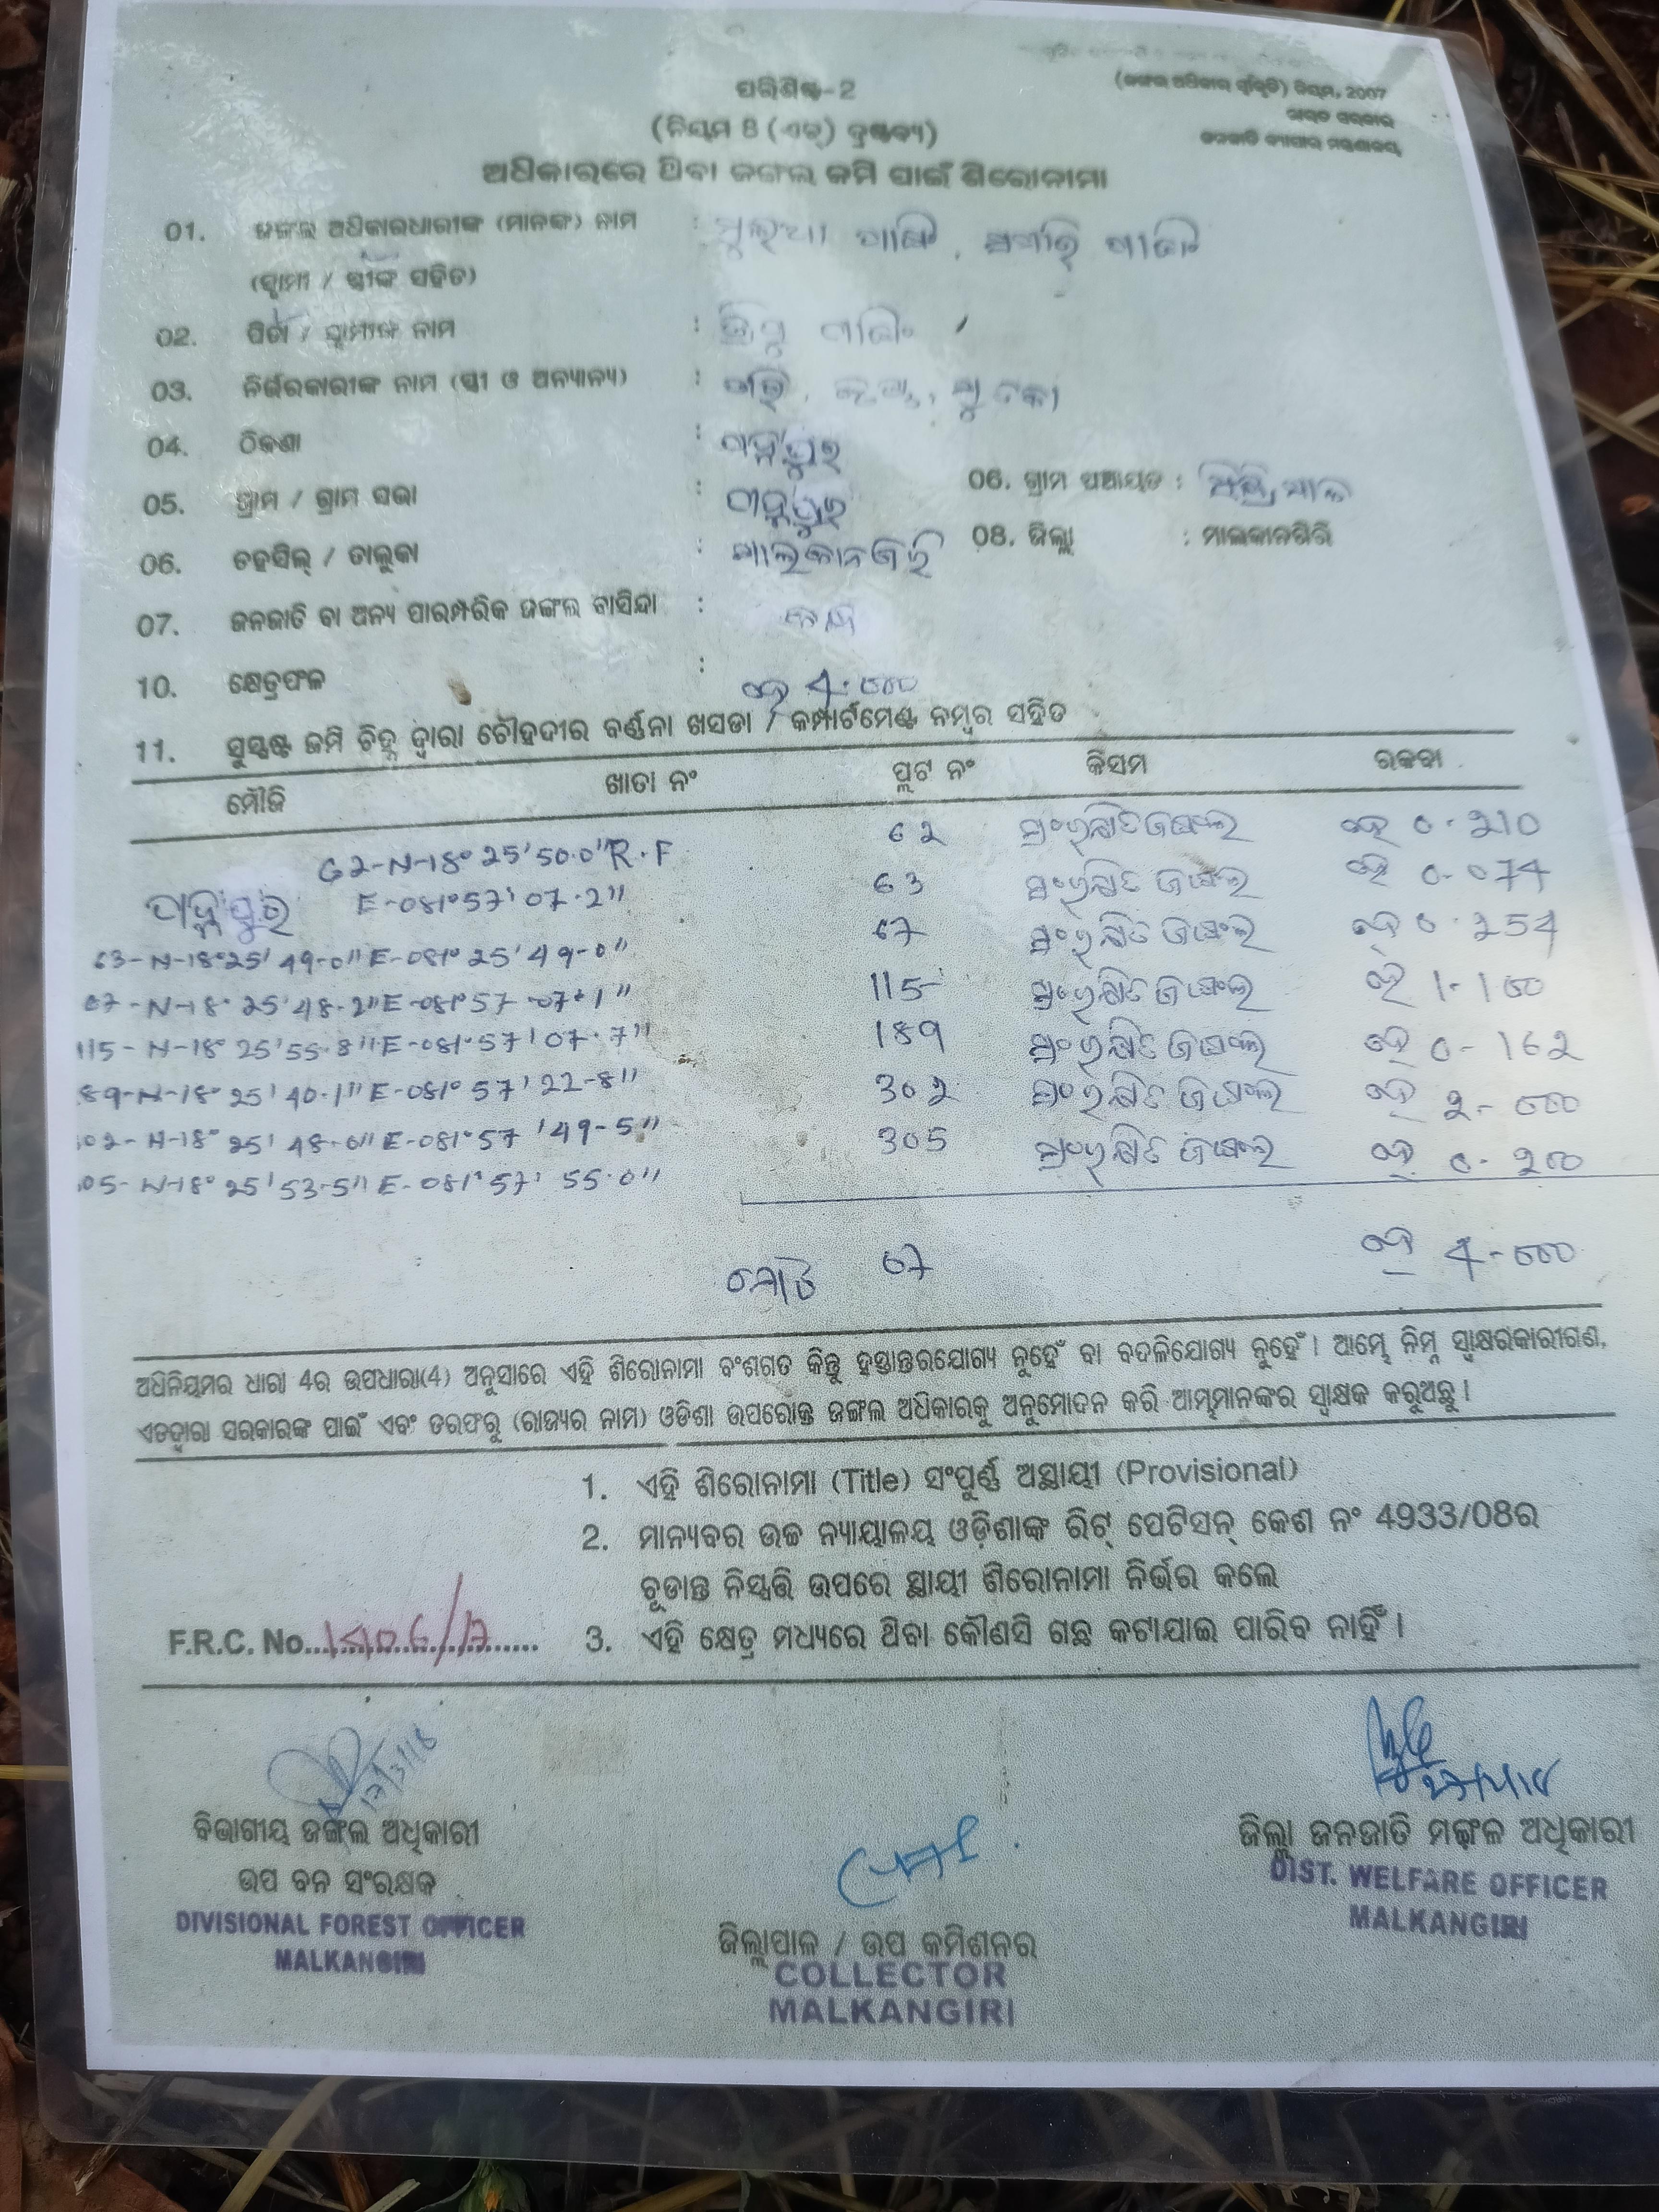 ପରିଶିଷ୍ଟ-2
(ଜଙ୍ଗଲ ଅଧିକାର ସ୍ୱୀକୃତି) ନିୟମ, 2007
(ନିୟମ 8 (ଏଚ୍) ଦ୍ରଷ୍ଟବ୍ୟ)
ଭାରତ ସରକାର
ଜନଜାତି ବ୍ୟାପାର ମନ୍ତ୍ରଣାଳୟ
ଅଧିକାରରେ ଥିବା ଜଙ୍ଗଲ ଜମି ପାଇଁ ଶିରୋନାମା
01. ଜଙ୍ଗଲ ଅଧିକାରଧାରୀଙ୍କ (ମାନଙ୍କ) ନାମ :
(ସ୍ୱାମୀ / ସ୍ତ୍ରୀଙ୍କ ସହିତ)
02. ପିତା / ସ୍ୱାମୀଙ୍କ ନାମ :
03. ନିର୍ଭରକାରୀଙ୍କ ନାମ (ସ୍ତ୍ରୀ ଓ ଅନ୍ୟାନ୍ୟ) :
04. ଠିକଣା :
05. ଗ୍ରାମ / ଗ୍ରାମ ସଭା : 06. ଗ୍ରାମ ପଞ୍ଚାୟତ :
06. ତହସିଲ୍ / ତାଲୁକା : ମାଲକାନଗିରି 08. ଜିଲ୍ଲା : ମାଲକାନଗିରି
07. ଜନଜାତି ବା ଅନ୍ୟ ପାରମ୍ପରିକ ଜଙ୍ଗଲ ବାସିନ୍ଦା :
10. କ୍ଷେତ୍ରଫଳ : ହେ 4.000
11. ସୁସ୍ପଷ୍ଟ ଜମି ଚିହ୍ନ ଦ୍ୱାରା ଚୌହଦୀର ବର୍ଣ୍ଣନା ଖସଡା / କମ୍ପାର୍ଟମେଣ୍ଟ ନମ୍ବର ସହିତ
ମୌଜି ଖାତା ନଂ ପ୍ଲଟ ନଂ କିସମ ରକବା
62-N-18° 25' 50.0" R.F 62 ସଂରକ୍ଷିତ ଜଙ୍ଗଲ ହେ 0.210
E-081° 57' 07.2" 63 ସଂରକ୍ଷିତ ଜଙ୍ଗଲ ହେ 0-074
63-N-18° 25' 49-0" E-081° 25' 49-0" 67 ସଂରକ୍ଷିତ ଜଙ୍ଗଲ ହେ 0.254
67-N-18° 25' 48.2" E-081° 57 07.1" 115 ସଂରକ୍ଷିତ ଜଙ୍ଗଲ ହେ 1-100
115-N-18° 25' 55.8" E-081° 57' 07.7" 189 ସଂରକ୍ଷିତ ଜଙ୍ଗଲ ହେ 0-162
89-N-18° 25' 40.1" E-081° 57' 22-8" 302 ସଂରକ୍ଷିତ ଜଙ୍ଗଲ ହେ 2-000
02-N-18° 25' 48-0" E-081° 57 '49-5" 305 ସଂରକ୍ଷିତ ଜଙ୍ଗଲ ହେ 0-200
05-N-18° 25' 53-5" E-081° 57' 55.0"
ମୋଟ ହେ 4-000
ଅଧିନିୟମର ଧାରା 4ର ଉପଧାରା(4) ଅନୁସାରେ ଏହି ଶିରୋନାମା ବଂଶଗତ କିନ୍ତୁ ହସ୍ତାନ୍ତରଯୋଗ୍ୟ ନୁହେଁ ବା ବଦଳିଯୋଗ୍ୟ ନୁହେଁ । ଆମ୍ଭେ ନିମ୍ନ ସ୍ୱାକ୍ଷରକାରୀଗଣ,
ଏତଦ୍ୱାରା ସରକାରଙ୍କ ପାଇଁ ଏବଂ ତରଫରୁ (ରାଜ୍ୟର ନାମ) ଓଡିଶା ଉପରୋକ୍ତ ଜଙ୍ଗଲ ଅଧିକାରକୁ ଅନୁମୋଦନ କରି ଆମ୍ଭମାନଙ୍କର ସ୍ୱାକ୍ଷକ କରୁଅଛୁ ।
1. ଏହି ଶିରୋନାମା (Title) ସଂପୂର୍ଣ୍ଣ ଅସ୍ଥାୟୀ (Provisional)
2. ମାନ୍ୟବର ଉଚ୍ଚ ନ୍ୟାୟାଳୟ ଓଡ଼ିଶାଙ୍କ ରିଟ୍ ପେଟିସନ୍ କେଶ ନଂ 4933/08ର
ଚୂଡାନ୍ତ ନିସ୍ପତ୍ତି ଉପରେ ସ୍ଥାୟୀ ଶିରୋନାମା ନିର୍ଭର କଲେ
F.R.C. No. 3. ଏହି କ୍ଷେତ୍ର ମଧ୍ୟରେ ଥିବା କୌଣସି ଗଛ କଟାଯାଇ ପାରିବ ନାହିଁ ।
ବିଭାଗୀୟ ଜଙ୍ଗଲ ଅଧିକାରୀ
ଉପ ବନ ସଂରକ୍ଷକ
DIVISIONAL FOREST OFFICER
MALKANGIRI
ଜିଲ୍ଲାପାଳ / ଉପ କମିଶନର
COLLECTOR
MALKANGIRI
ଜିଲ୍ଲା ଜନଜାତି ମଙ୍ଗଳ ଅଧିକାରୀ
DIST. WELFARE OFFICER
MALKANGIRI